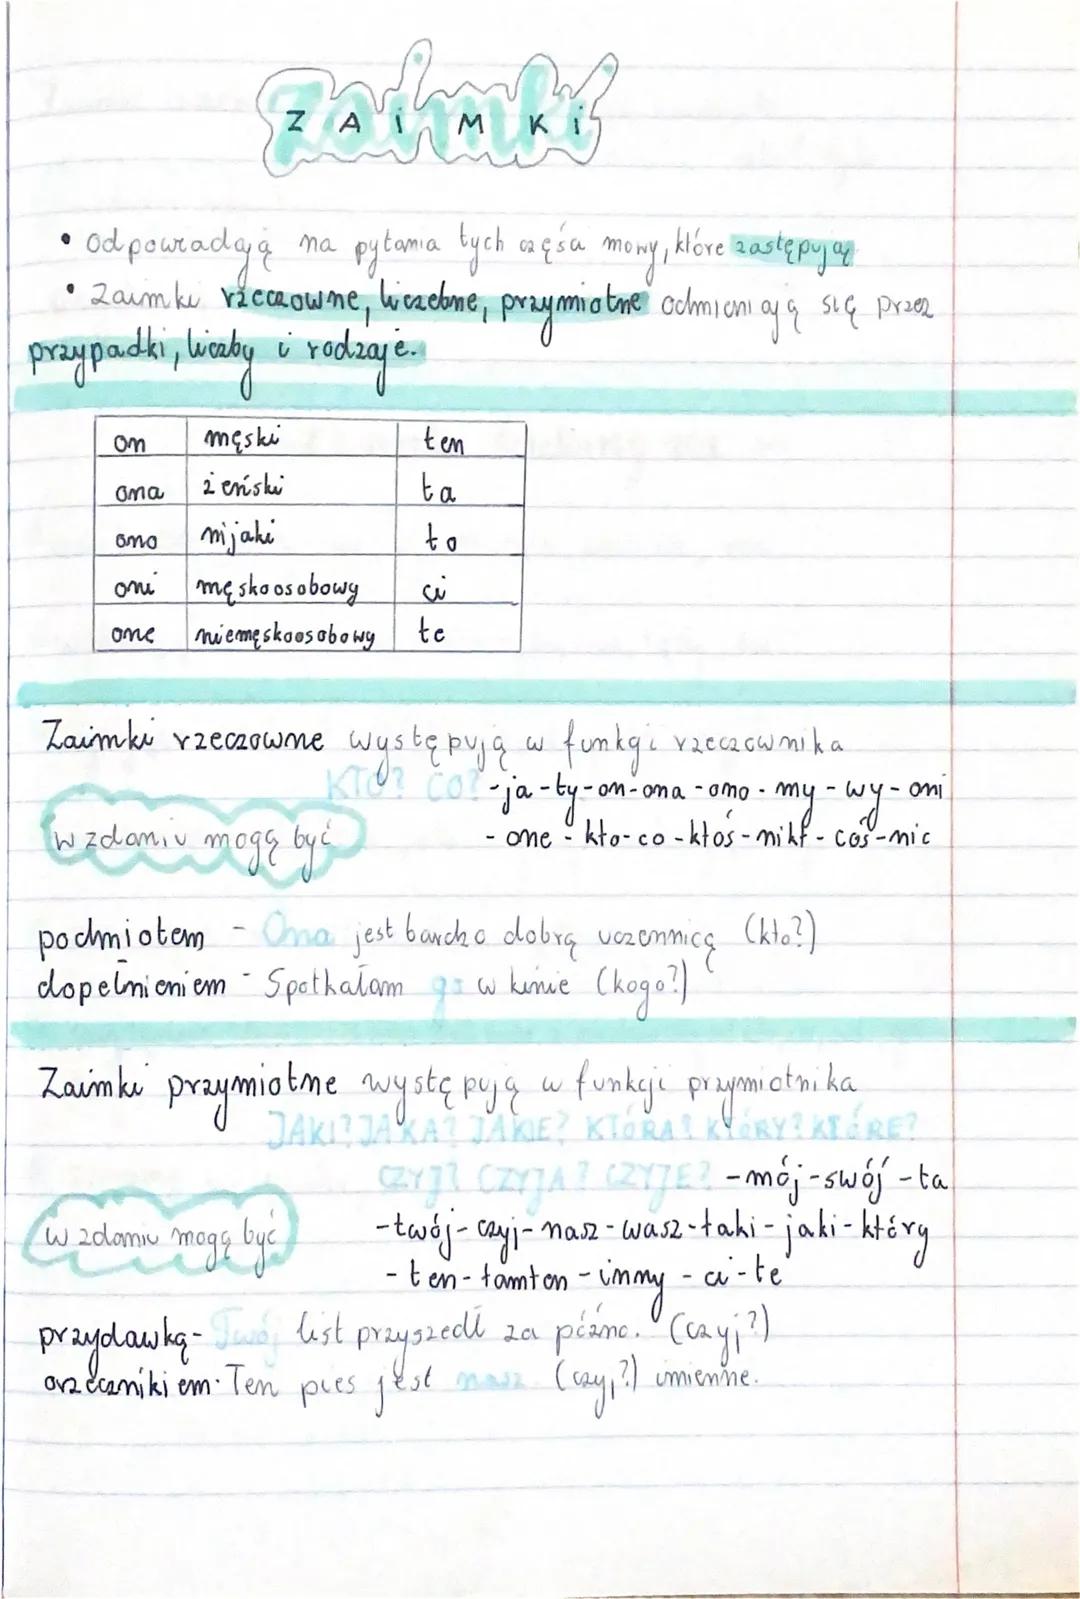 ZAiMKi
• Odpowiadają na pytania tych części mowy, które zastępują
• Zaimki rzeczowne, liczebne, przymiotne odmieniają się przez
przypadki, liczby i rodzaje.
on męski ten
ona żeński ta
ono nijaki to
oni męskoosobowy ci
one niemęskoosobowy te
Zaimki rzeczowne występują w funkcji rzeczownika
KTO? CO? -ja-ty-on-ona-ono-my-wy-oni
w zdaniu mogą być - one - kto-co-ktoś-nikt-coś-nic
podmiotem - Ona jest bardzo dobrą uczennicą (kto?)
dopełnieniem - Spotkałam go w kinie (kogo?)
Zaimki przymiotne występują w funkcji przymiotnika
JAKI? JAKA? JAKIE? KTÓRA? KTÓRY? KTÓRE?
CZYJ? CZYJA? CZYJE? -mój-swój-ta
w zdaniu mogą być -twój-czyj-nasz-wasz-taki-jaki-który
- ten-tamten-inny-ci-te
przydawką- Twój list przyszedł za późno. (czyj?)
orzecznikiem- Ten pies jest nasz. (czyj?) imienne.